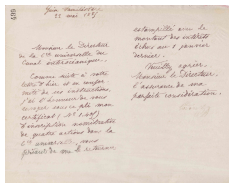 499
23 mai 18
Monsieur le Directeur
de la Cie universelle du
Canal interocéanique.
Comme suite à votre
lettre d'hier et en confor-
mité de vos instructions,
j'ai l'honneur de vous
envoyer sous ce pli mon
certificat
d'inscription nominative
de quatre actions de la
Cie universelle, vous
priant de me le retourner
estampillé avec le
montant des intérêts
échus au 1 janvier
dernier.
Veuillez agréer,
Monsieur le Directeur,
l'assurance de ma
parfaite considération.